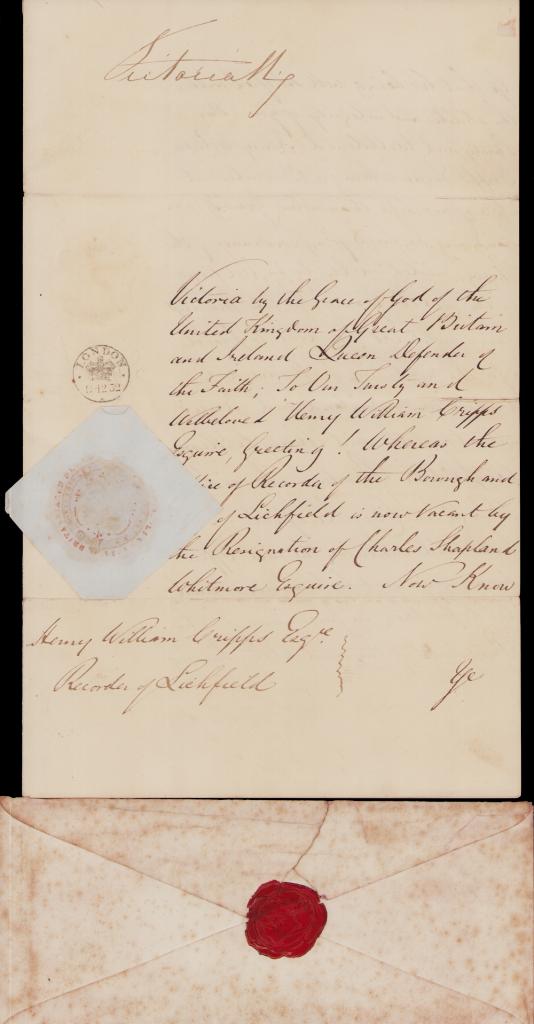 Victoria R
Victoria by the Grace of God of the
United Kingdom of Great Britain
and Ireland Queen Defender of
the Faith; To Our Trusty and
Wellbeloved Henry William Cripps
Esquire, Greeting! Whereas the
of Recorder of the Borough and
of Lichfield is now Vacant by
the Resignation of Charles Shapland
Whitmore Esquire. Now Know
Ye
LONDON
12 52
Henry William Cripps Esqre
Recorder of Lichfield